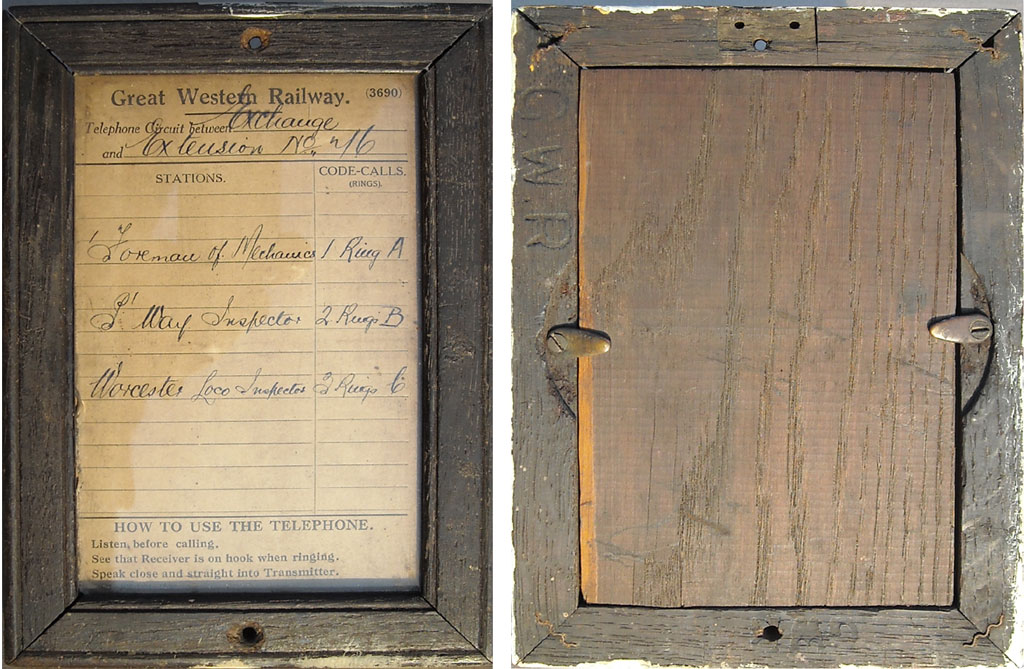 Great Western Railway. (3690)
Telephone Circuit between Exchange
and Extension No 216
STATIONS. CODE-CALLS.
(RINGS).
Foreman of Mechanics 1 Ring A
P' Way Inspector 2 Rings B
Worcester Loco Inspector 3 Rings C
HOW TO USE THE TELEPHONE.
Listen before calling.
See that Receiver is on hook when ringing.
Speak close and straight into Transmitter.
G.W.R